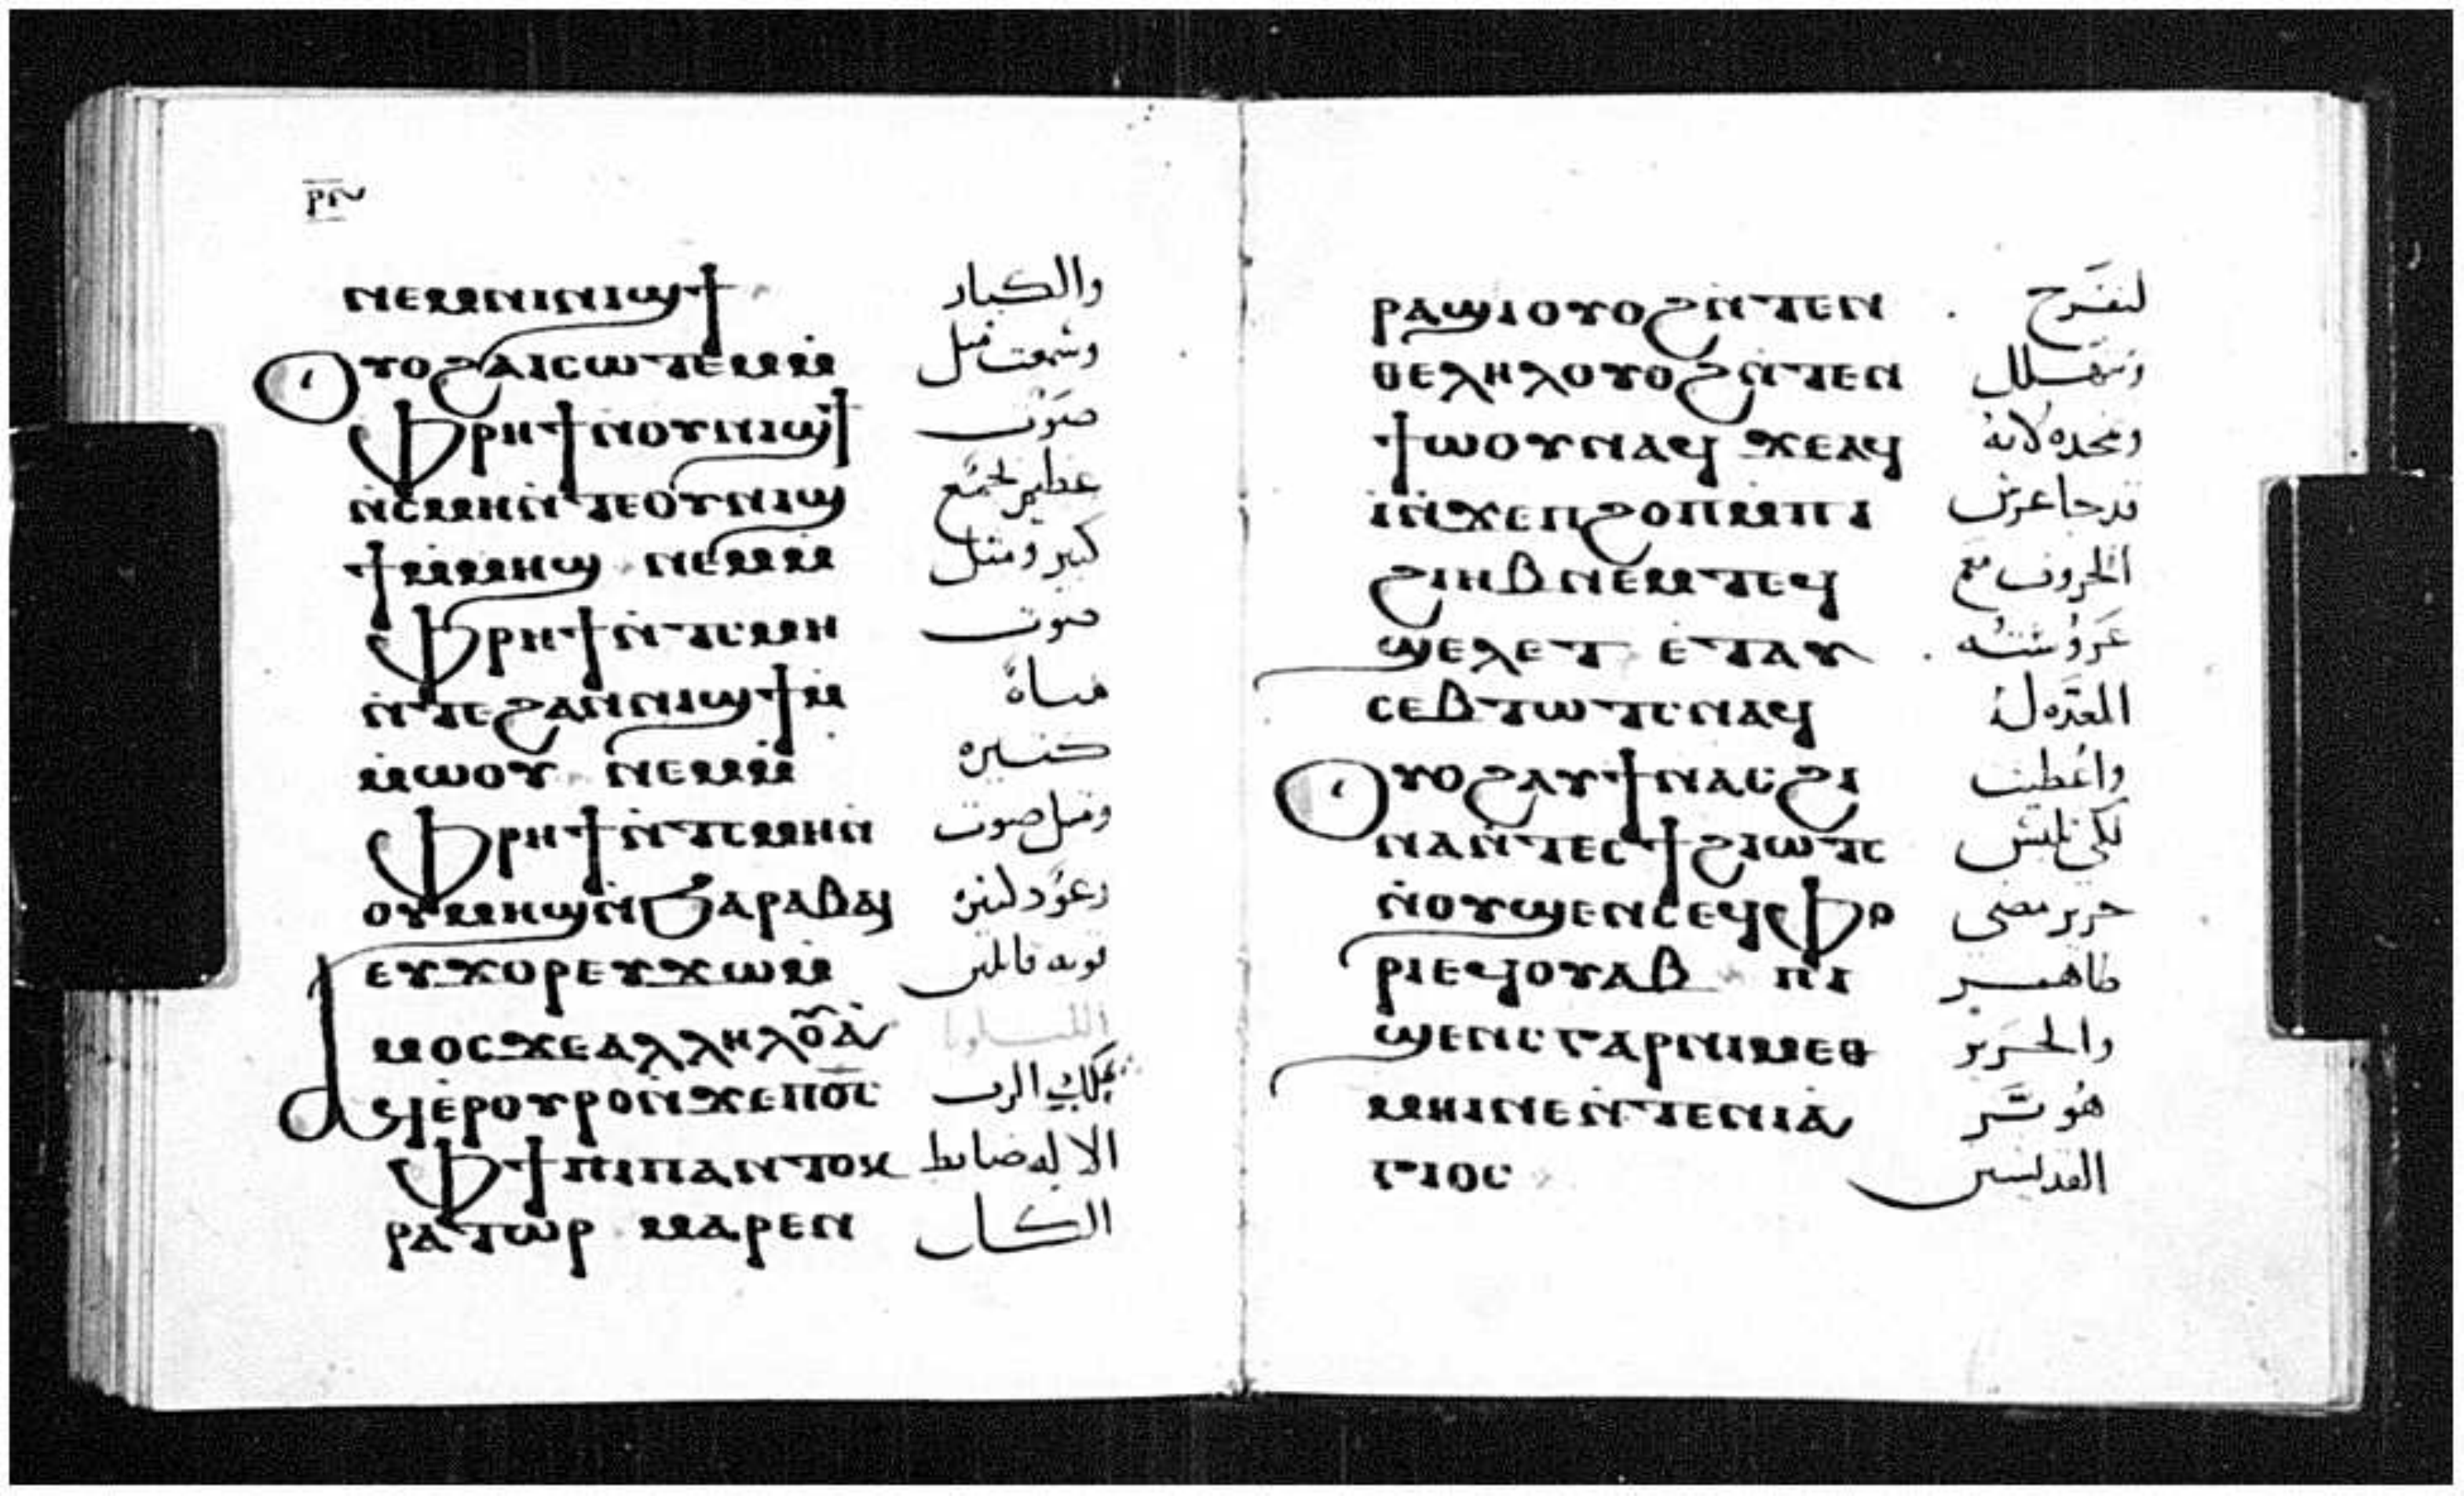 ⲛⲉⲙⲛⲓⲛⲓϣϯ والكبار
ⲟⲩⲟϩⲁⲓⲥⲱⲧⲉⲙⲙ̀ وسمعت مثل
ⲫⲣⲏϯⲛⲟⲩⲛⲓϣϯ صوت
ⲛ̀ⲥⲙⲏⲛ̀ⲧⲉⲟⲩⲛⲓϣ عظيم لجمع
ϯⲙ̀ⲙⲏϣ ⲛⲉⲙⲙ̀ كبير ومثل
ⲫⲣⲏϯⲛ̀ⲧⲥⲙⲏ صوت
ⲛ̀ⲧⲉϩⲁⲛⲛⲓϣϯⲙ̀ مياه
ⲙⲱⲟⲩ ⲛⲉⲙⲙ̀ كثيره
ⲫⲣⲏϯⲛ̀ⲧⲥⲙⲏⲛ̀ ومثل صوت
ⲟⲩⲙⲏϣⲛ̀ϧⲁⲣⲁⲃⲁⲓ رعود
ⲉⲩϫⲟⲣⲉⲩϫⲱⲙ̀ قويه قايلين
ⲙⲟⲥϫⲉⲁⲗⲗⲏⲗⲟ̅ⲁ̀ الليلويا
ⲁϥⲓⲉ̀ⲣⲟⲩⲣⲟⲛ̀ϫⲉⲡⲟ̅ⲥ̅ بملك الرب
ⲫϯⲡⲓⲡⲁⲛⲧⲟⲕ الاله ضابط
ⲣⲁⲧⲱⲣ ⲙⲁⲣⲉⲛ الكل
ⲣⲁϣⲓⲟⲩⲟϩⲛ̀ⲧⲉⲛ لنفرح
ⲑⲉⲗⲏⲗⲟⲩⲟϩⲛ̀ⲧⲉⲛ ونتهلل
ϯⲱⲟⲩⲛⲁϥ ϫⲉⲁϥ ونمجده لانه
ⲓ̀ⲛ̀ϫⲉⲡϩⲟⲡⲙ̀ⲡⲓ قد جا عرس
ϩⲓⲏⲃⲛⲉⲙⲧⲉϥ الخروف مع
ϣⲉⲗⲉⲧ ⲉ̀ⲧⲁⲩ عروسته
ⲥⲉⲃⲧⲱⲧⲥⲛⲁϥ المعده له
ⲟⲩⲟϩⲁⲩϯⲛⲁⲥϩⲓ واعطيت
ⲛⲁⲛ̀ⲧⲉⲥϯϩⲓⲱⲧⲥ لكي تلبس
ⲛ̀ⲟⲩϣⲉⲛⲥⲉϥⲫⲟ حرير مضى
ⲣⲓⲉϥⲟⲩⲁⲃ ⲡⲓ طاهر
ϣⲉⲛⲥⲅⲁⲣⲛⲓⲙⲉⲑ والحرير
ⲙⲏⲓⲛⲉⲛ̀ⲧⲉⲛⲓⲁ̀ هو
ⲅⲓⲟⲥ القديسين